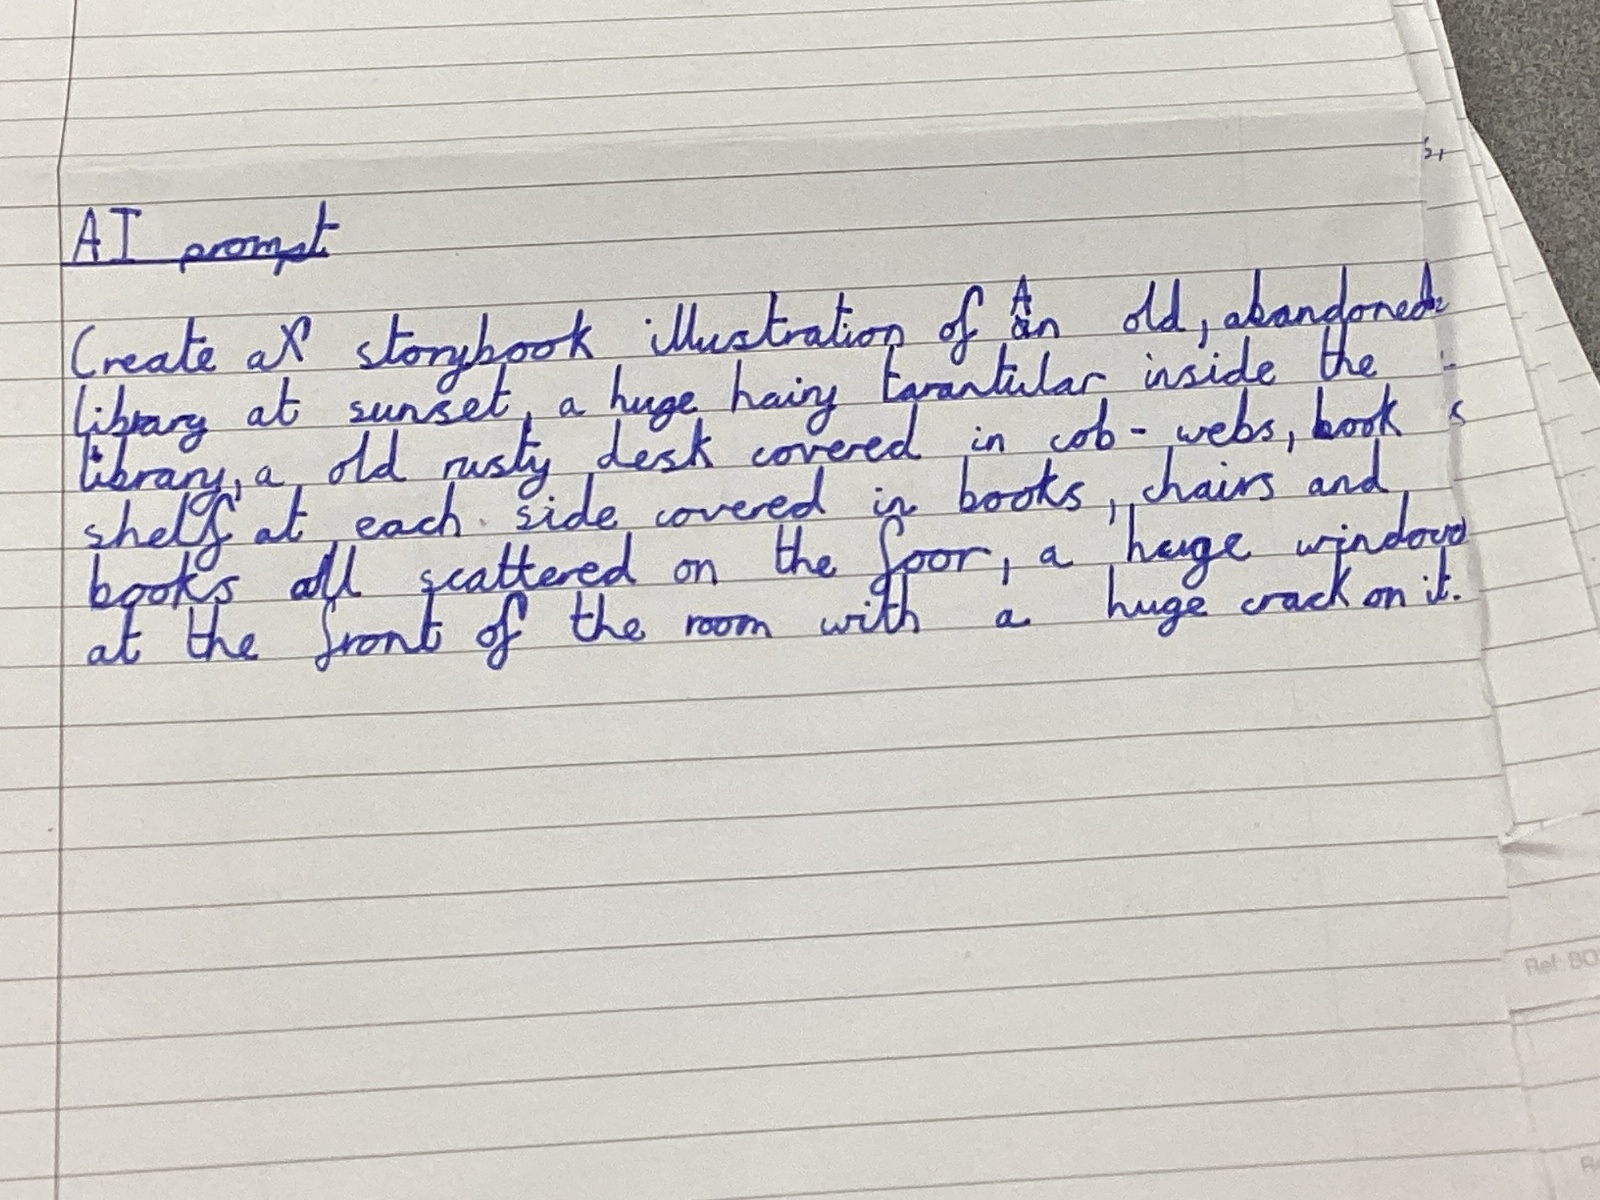 AI prompt
Create a storybook illustration of an old, abandoned
library at sunset, a huge hairy tarantular inside the
library, a old rusty desk covered in cob-webs, book
shelf at each side covered in books, chairs and
books all scattered on the foor, a huge window
at the front of the room with a huge crack on it.
Ref: BO